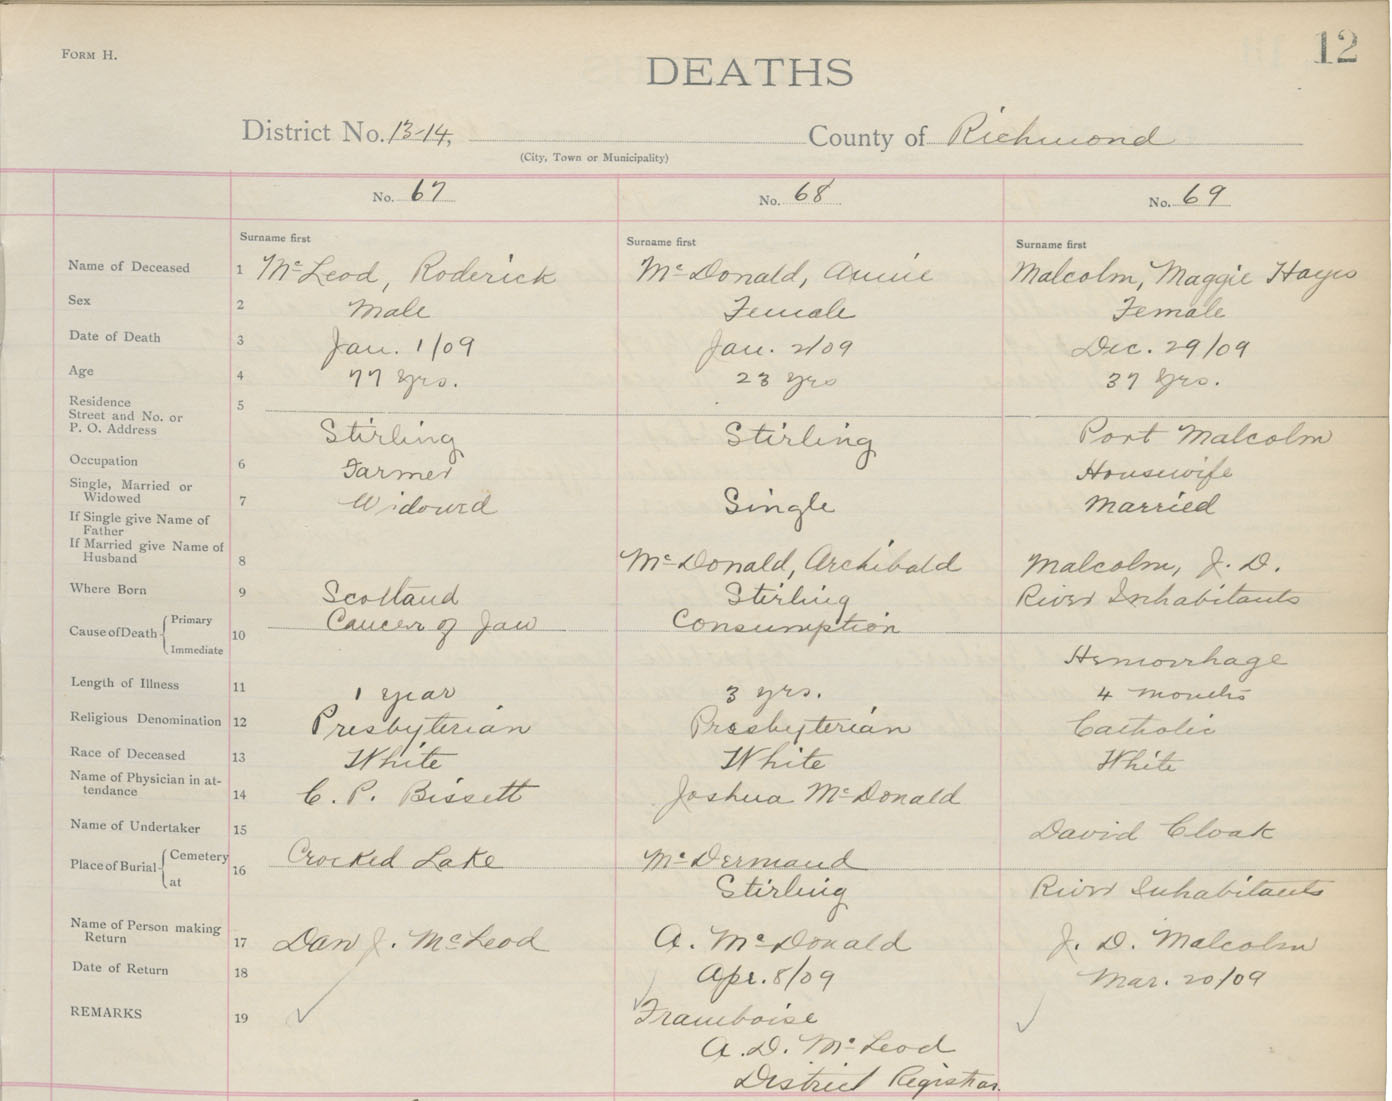 FORM H.
12
DEATHS
District No. 13-14, County of Richmond
(City, Town or Municipality)
No. 67 No. 68 No. 69
Surname first Surname first Surname first
Name of Deceased 1 McLeod, Roderick McDonald, Annie Malcolm, Maggie Hayes
Sex 2 Male Female Female
Date of Death 3 Jan. 1/09 Jan. 2/09 Dec. 29/09
Age 4 77 yrs. 23 yrs 37 yrs.
Residence 5
Street and No. or
P. O. Address Stirling Stirling Port Malcolm
Occupation 6 Farmer Housewife
Single, Married or
Widowed 7 Widowed Single Married
If Single give Name of
Father
If Married give Name of
Husband 8 McDonald, Archibald Malcolm, J. D.
Where Born 9 Scotland Stirling River Inhabitants
Cause of Death Primary 10 Cancer of Jaw Consumption
Immediate Hemorrhage
Length of Illness 11 1 year 3 yrs. 4 months
Religious Denomination 12 Presbyterian Presbyterian Catholic
Race of Deceased 13 White White White
Name of Physician in at-
tendance 14 C. P. Bissett Joshua McDonald
Name of Undertaker 15 David Cloak
Place of Burial Cemetery 16 Crooked Lake McDermaud
at Stirling River Inhabitants
Name of Person making
Return 17 Dan J. McLeod A. McDonald J. D. Malcolm
Date of Return 18 Apr. 8/09 Mar. 20/09
REMARKS 19 Framboise
A. D. McLeod
District Registrar.